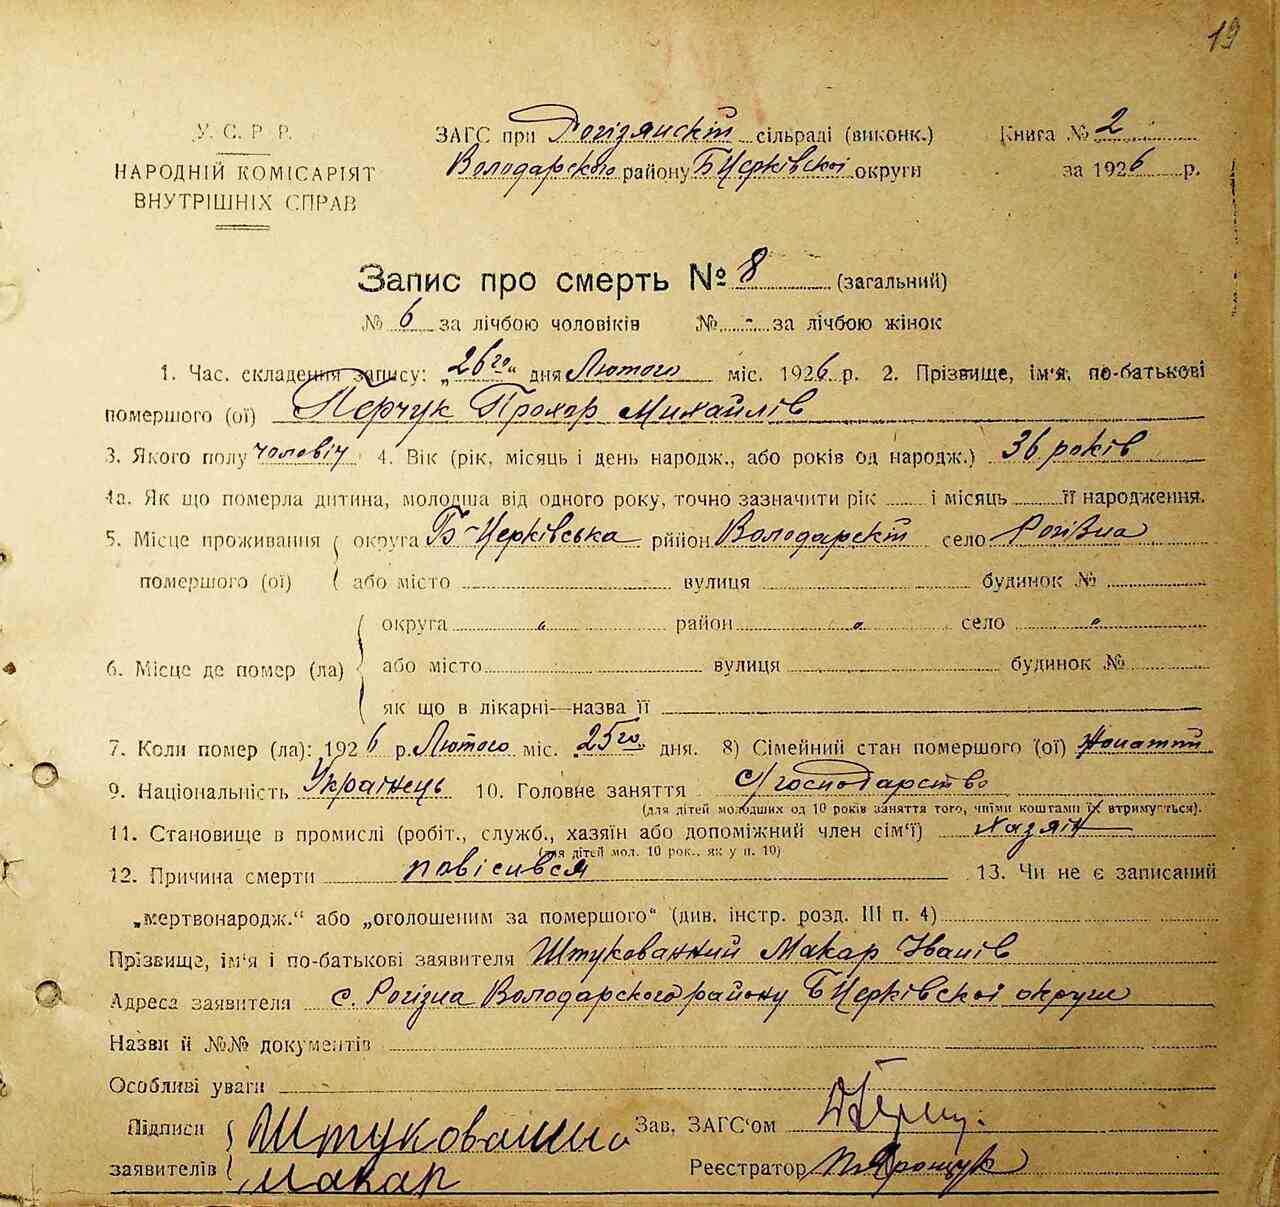 19
У. С. Р. Р.
НАРОДНІЙ КОМІСАРІЯТ
ВНУТРІШНІХ СПРАВ
ЗАГС при Рогізянскій сільраді (виконк.)
Володарского району Б Церківскої округи
Книга № 2
за 1926 р.
Запис про смерть № 8 (загальний)
№ 6 за лічбою чоловіків № - за лічбою жінок
1. Час. складення запису: „26го“ дня Лютого міс. 1926 р. 2. Прізвище, ім'я, по-батькові
помершого (ої) Перчук Прохор Михайлів
3. Якого полу чоловіч 4. Вік (рік, місяць і день народж., або років од народж.) 36 років
4а. Як що померла дитина, молодша від одного року, точно зазначити рік і місяць її народження.
5. Місце проживання округа Б-Церківська рйійон Володарскій село Рогізна
помершого (ої) або місто вулиця будинок №
округа " район " село "
6. Місце де помер (ла) або місто вулиця будинок №
як що в лікарні—назва її
7. Коли помер (ла): 1926 р. Лютого міс. 25го дня. 8) Сімейний стан помершого (ої) жонатий
9. Національність Українець 10. Головне заняття с/господарство
(для дітей молодших од 10 років заняття того, чиїми коштами їх втримується).
11. Становище в промислі (робіт., служб., хазяїн або допоміжний член сім'ї) хазяін
(для дітей мол. 10 рок., як у п. 10)
12. Причина смерти повісився 13. Чи не є записаний
„мертвонародж.“ або „оголошеним за помершого“ (див. інстр. розд. III п. 4)
Прізвище, ім'я і по-батькові заявителя Штукованний Макар Іванів
Адреса заявителя с. Рогізна Володарского району Б Церківскої округи
Назви й №№ документів
Особливі уваги
Підписи Штукованни Зав. ЗАГС'ом
заявителів Макар Реєстратор